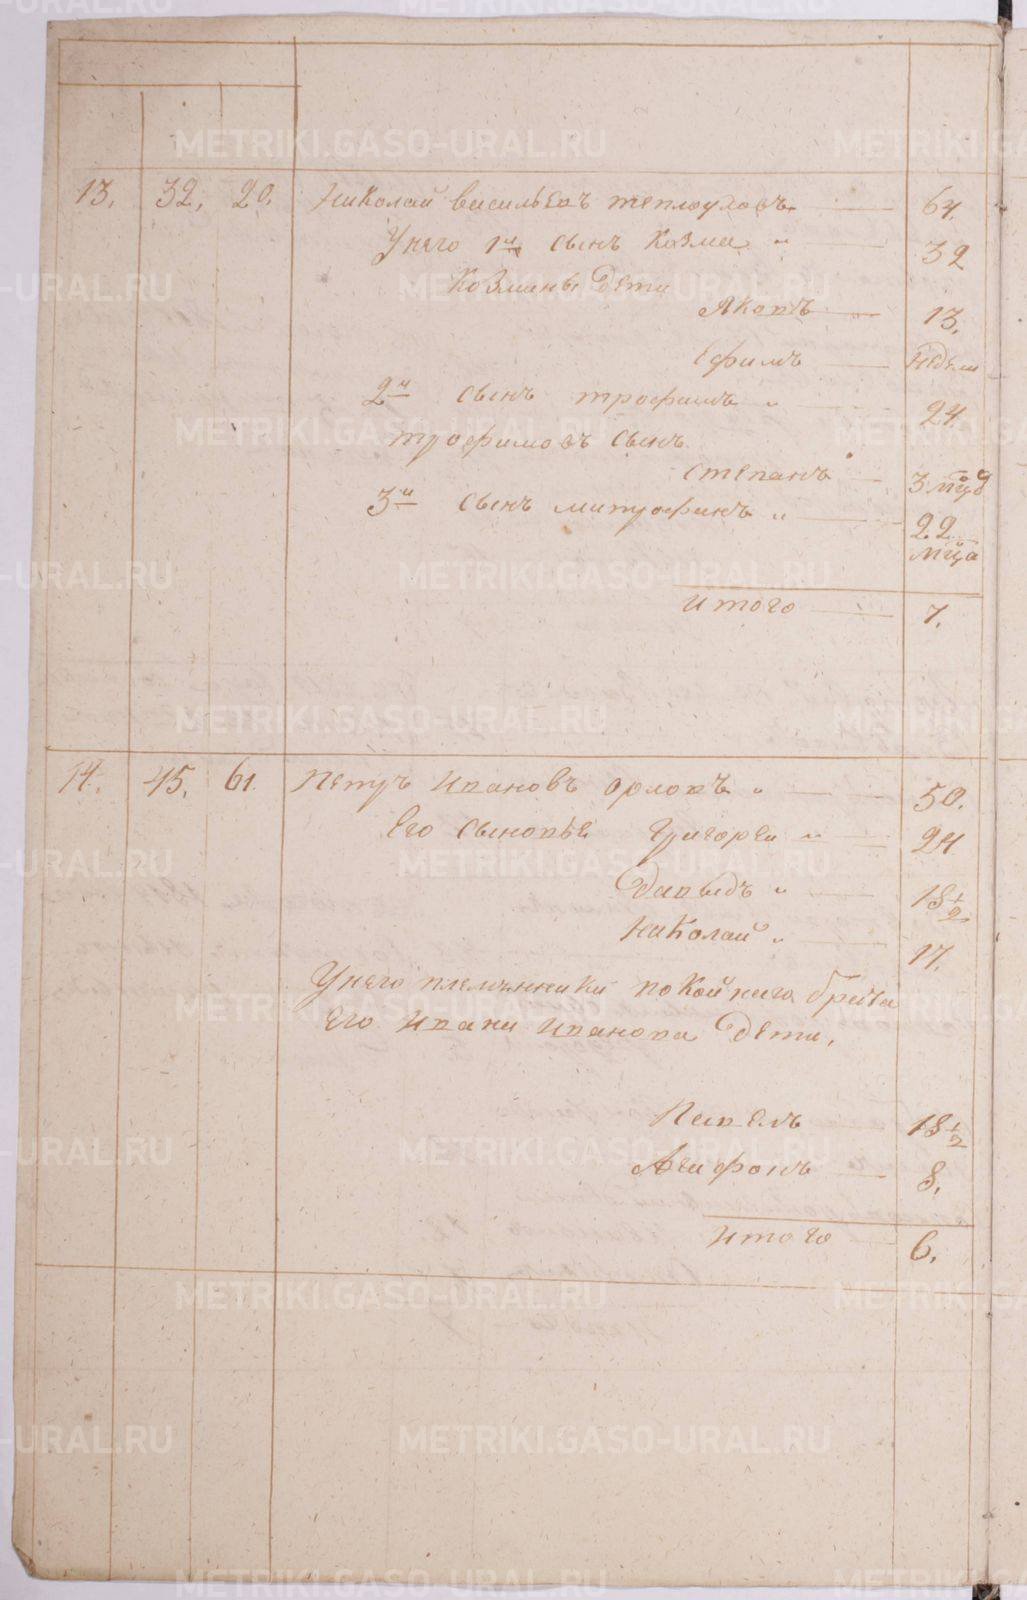 13. 32. 20. Николай васильевъ теплоуховъ 64.
У него 1й сынъ Козма " 32
Козмины Дети
Яковъ 13.
Ефимъ недели
2й сынъ трофимъ " 24.
трофимовъ сынъ
степанъ 3 мцов
3й сынъ митрофанъ " 22
мца
итого 7.
14. 45. 61. Петръ Ивановъ орловъ " 50.
Его сыновье Григореи " 24
Давыдъ " 18 1/2
Николай " 17.
У него племянники покойнаго брата
его Ивана Иванова Дети.
Павелъ 18 1/2
Агафонъ 8.
итого 6.
METRIKI.GASO-URAL.RU